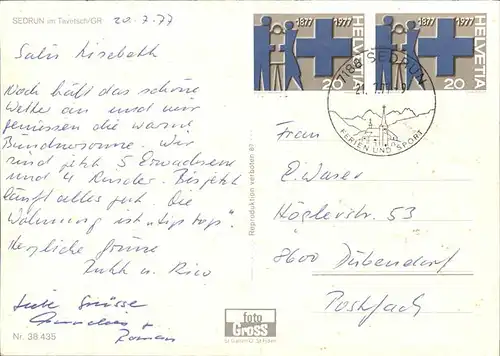 SEDRUN im Tavetsch/GR 20.7.77
Salü Lisebeth
Noch hält das schöne
Wetter an und wir
geniessen die warme
Bündnersonne. Wir
sind jetzt 5 Erwachsene
und 4 Kinder. Bis jetzt
läuft alles gut. Die
Wohnung ist „tip top".
Herzliche Grüsse
Ruth u. Rico
Liebe Grüsse
Nr. 38 435
Reproduktion verboten 87
foto
Gross
St. Gallen
1877 1977
20
HELVETIA
1877 1977
20
HELVETIA
7188 SEDRUN
21.7.77-9
FERIEN UND SPORT
Frau
E. Waser
Höglerstr. 53
8600 Dübendorf
Postfach